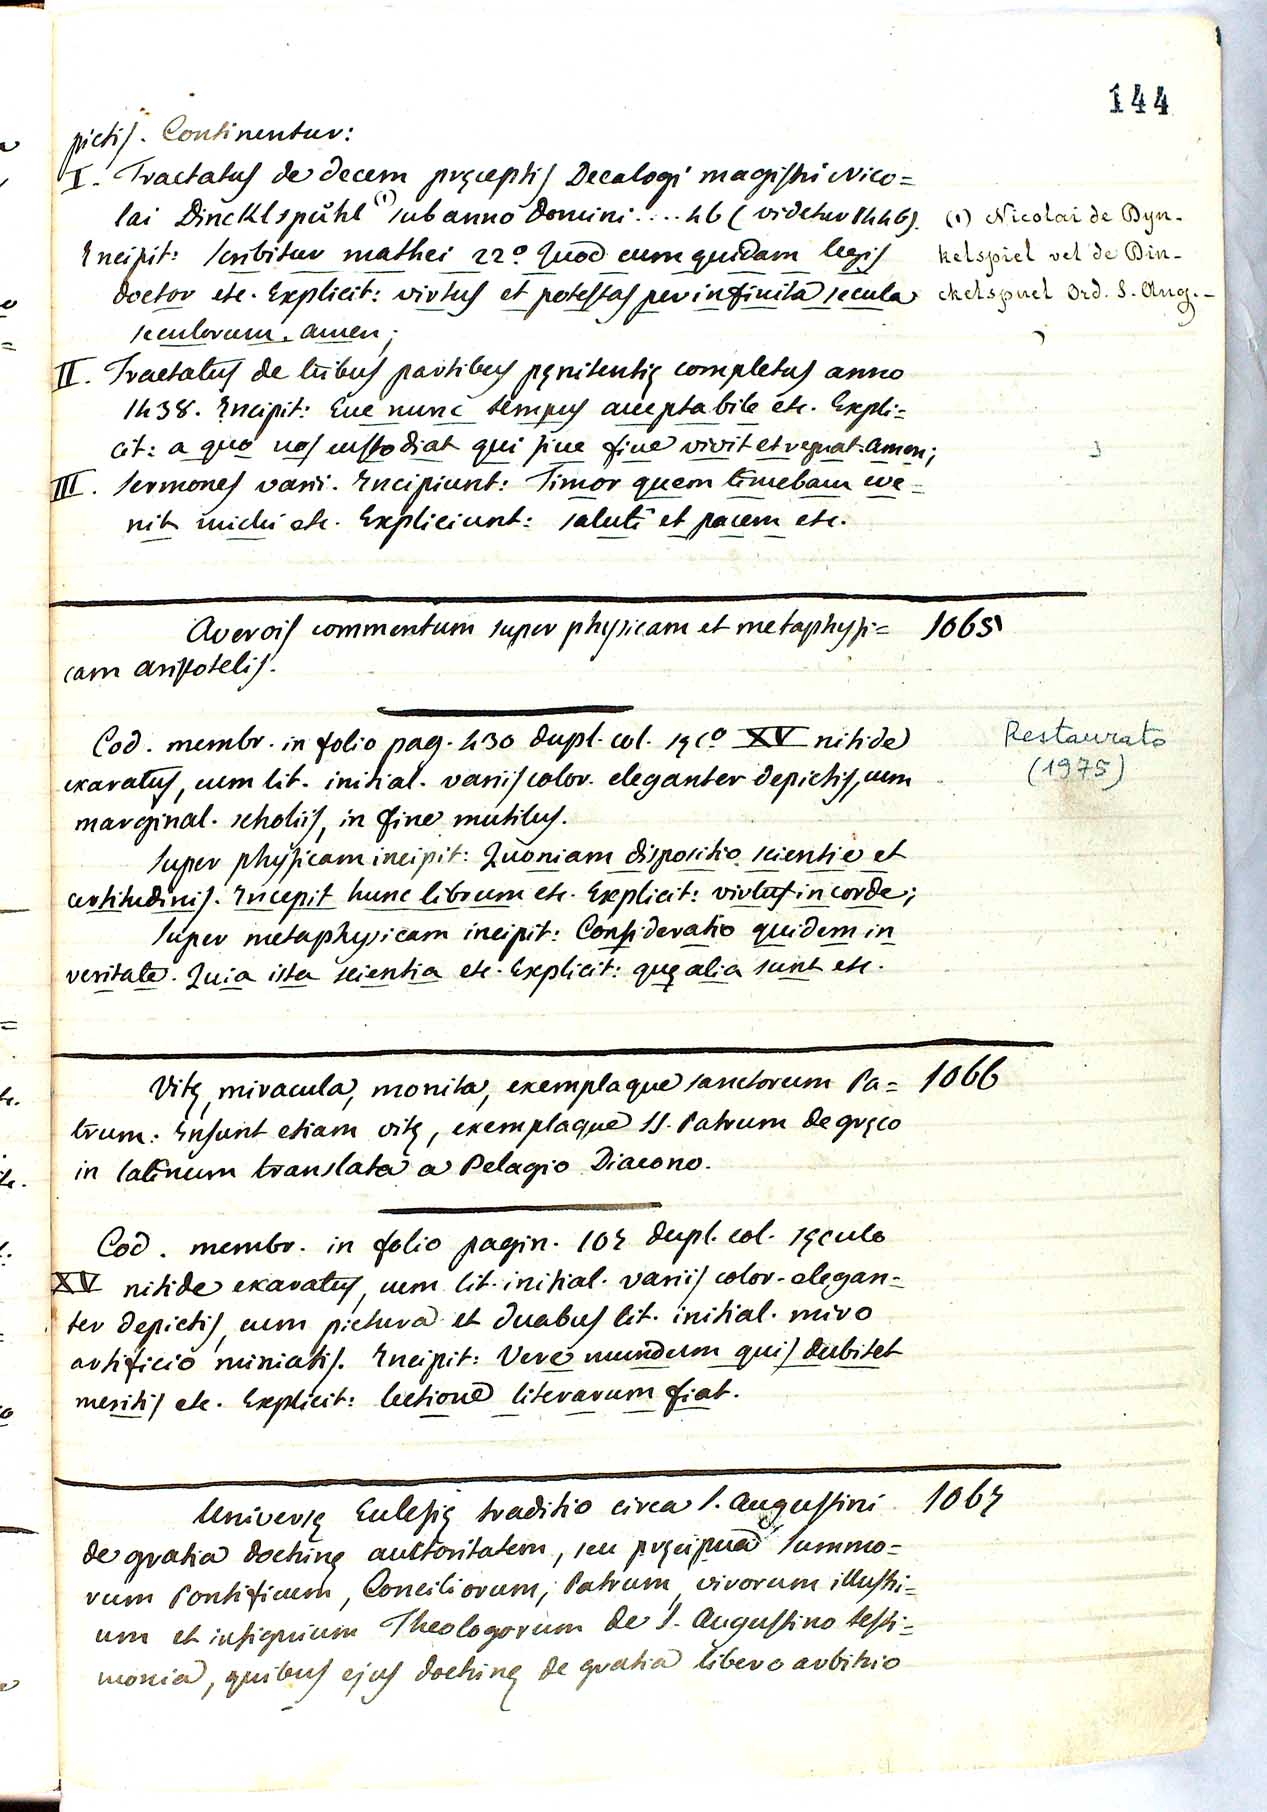 144
pictis. Continentur:
I. Tractatus de decem pręceptis Decalogi magistri Nico=
lai Dincklspühl (1) sub anno domini .... 46 (videtur 1446).
Incipit: Scribitur mathei 22º Quod cum quidam legis
doctor etc. Explicit: virtus et potestas per infinita secula
seculorum. amen;
(1) Nicolai de Dyn-
kelspiel vel de Din-
ckelspuel Ord. S. Aug.-
II. Tractatus de tribus partibus pęnitentię completus anno
1438. Incipit: Ecce nunc tempus acceptabile etc. Expli=
cit: a quo nos custodiat qui sine fine vivit et regnat. Amen;
III. Sermones varii. Incipiunt: Timor quem timebam eve=
nit michi etc. Expliciunt: saluti et pacem etc.
Averois commentum super physicam et metaphysi= 1065
cam Aristotelis.
Cod. membr. in folio pag. 430 dupl. col. sęcº XV nitide
exaratus, cum lit. initial. variis color. eleganter depictis, cum
marginal. scholiis, in fine mutilus.
Restaurato
(1975)
Super physicam incipit: Quoniam dispositio scientie et
certitudinis. Incepit hunc librum etc. Explicit: virtus in corde;
Super metaphysicam incipit: Consideratio quidem in
veritate. Quia ista scientia etc. Explicit: quę alia sunt etc.
Vitę, miracula, monita, exemplaque sanctorum Pa= 1066
trum: Insunt etiam vitę, exemplaque SS. Patrum de gręco
in latinum translata a Pelagio Diacono.
Cod. membr. in folio pagin. 107 dupl. col. sęculo
XV nitide exaratus, cum lit. initial. variis color. elegan=
ter depictis, cum pictura et duabus lit. initial. miro
artificio miniatis. Incipit: Vere mundum quis dubitet
meritis etc. Explicit: lectione literarum fiat.
Universę Eclesię traditio circa S. Augustini 1067
de gratia doctrinę auctoritatem, seu pręcipua Summo=
rum Pontificum, Conciliorum, Patrum, virorum illustri=
um et insignium Theologorum de S. Augustino testi=
monia, quibus ejus doctrinę de gratia libero arbitrio